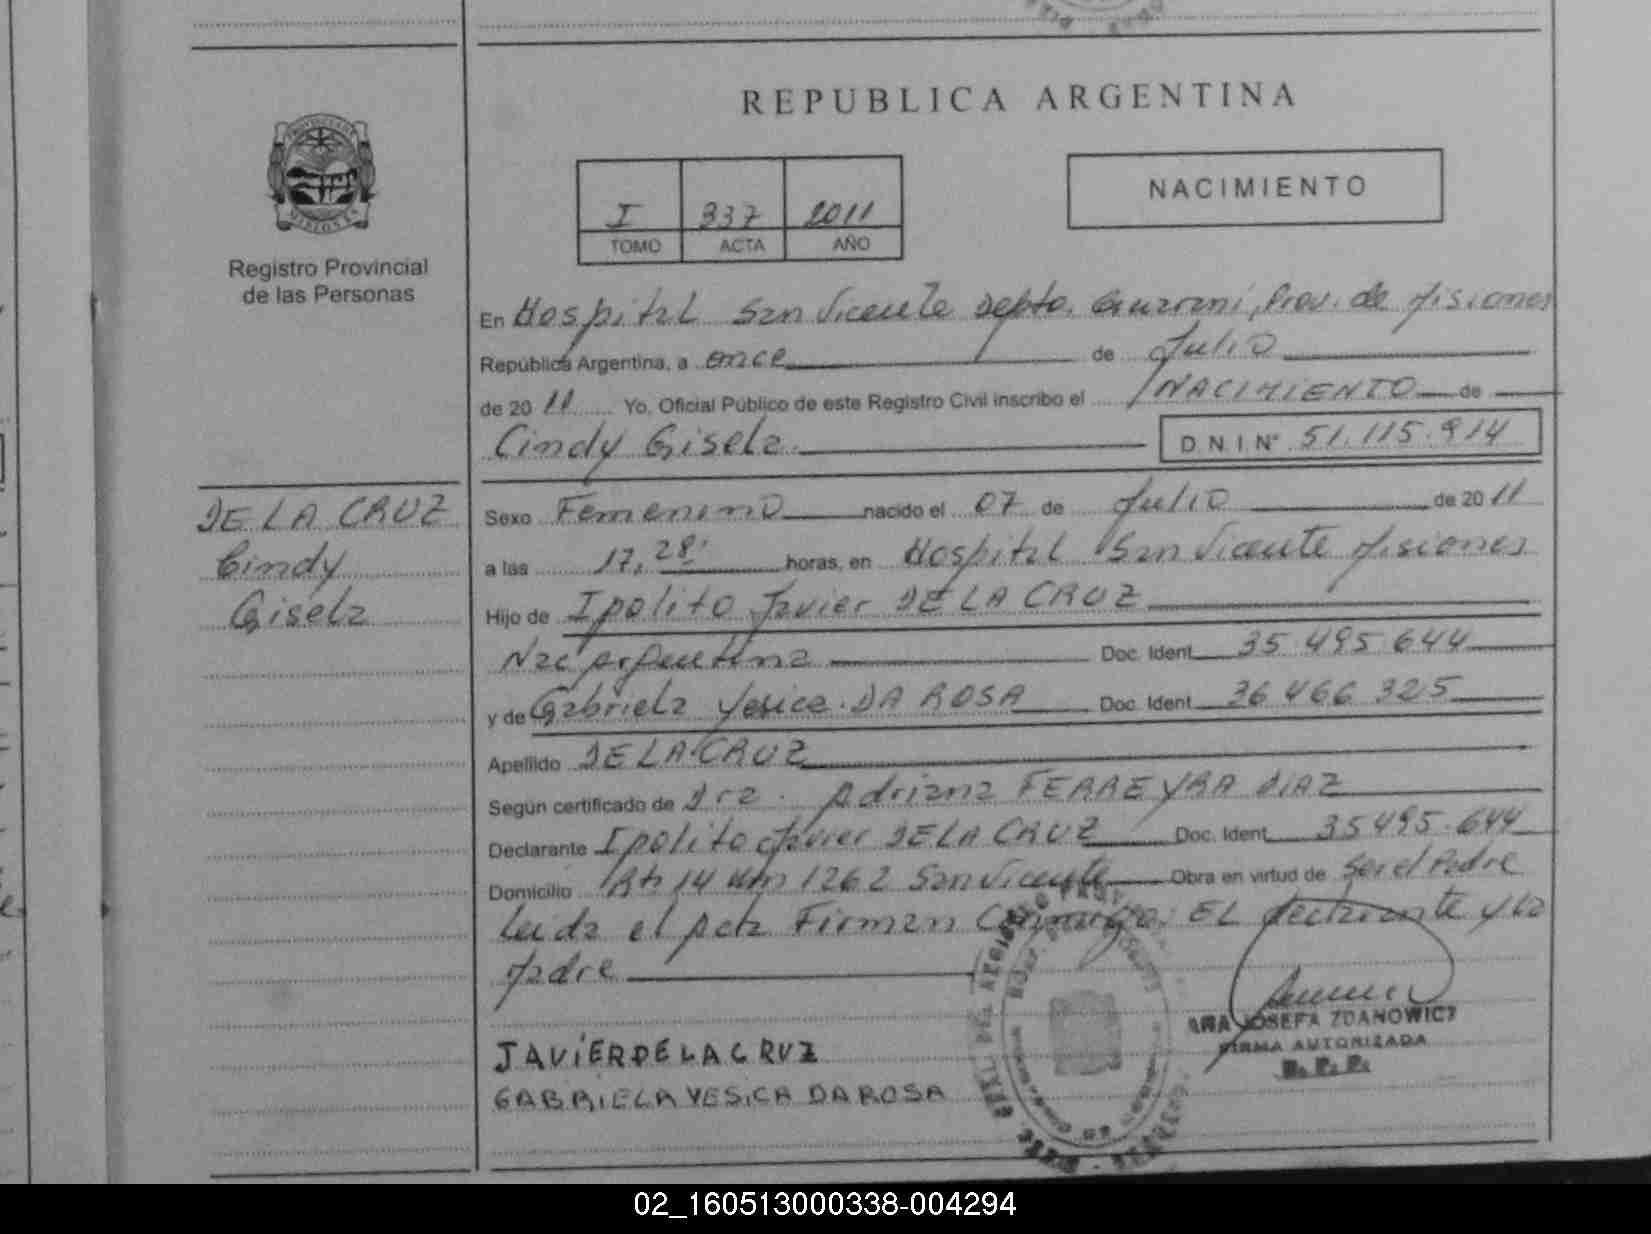 REPUBLICA ARGENTINA
NACIMIENTO
I 337 2011
TOMO ACTA AÑO
Registro Provincial
de las Personas
En Hospital San Vicente Depto. Guarani, Prov. de Misiones
República Argentina, a once de Julio
de 20 11 Yo, Oficial Público de este Registro Civil inscribo el NACIMIENTO de
Cindy Gisela D.N.I. N° 51.115.914
DE LA CRUZ
Cindy
Gisela
Sexo Femenino nacido el 07 de Julio de 20 11
a las 17,28' horas, en Hospital San Vicente Misiones
Hijo de Ipolito Javier DE LA CRUZ
Nac Argentina Doc. Ident 35 495 644
y de Gabriela Yesica DA ROSA Doc. Ident 36 466 325
Apellido DE LA CRUZ
Según certificado de Dra. Adriana FERREYRA DIAZ
Declarante Ipolito Javier DE LA CRUZ Doc. Ident 35 495.644
Domicilio Rta 14 Km 1262 San Vicente Obra en virtud de Ser el Padre
Leida el Acta Firman Conmigo: EL declarante y la
Madre
JAVIER DE LA CRUZ
GABRIELA YESICA DA ROSA
JOSEFA ZDANOWICZ
FIRMA AUTORIZADA
R. P. P.
02_160513000338-004294